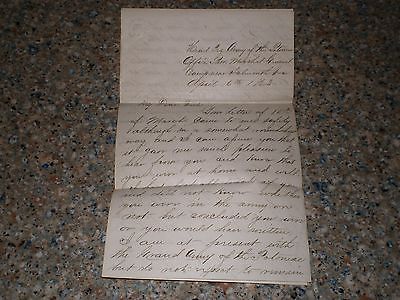 Head Qrs Army of the Potomac
Office Pro. Marshal General
Camp near Falmouth Va
April 6th 1863
My Dear
Your letter of
of March came to me safely
although in a somewhat
way and I can assure you that
it gave me much pleasure to
hear from you and know that
you were at home and well
did not know
you were in the army or
not but concluded you were
or you would have written
I am at present with
the Grand Army of the Potomac
but do not expect to remain